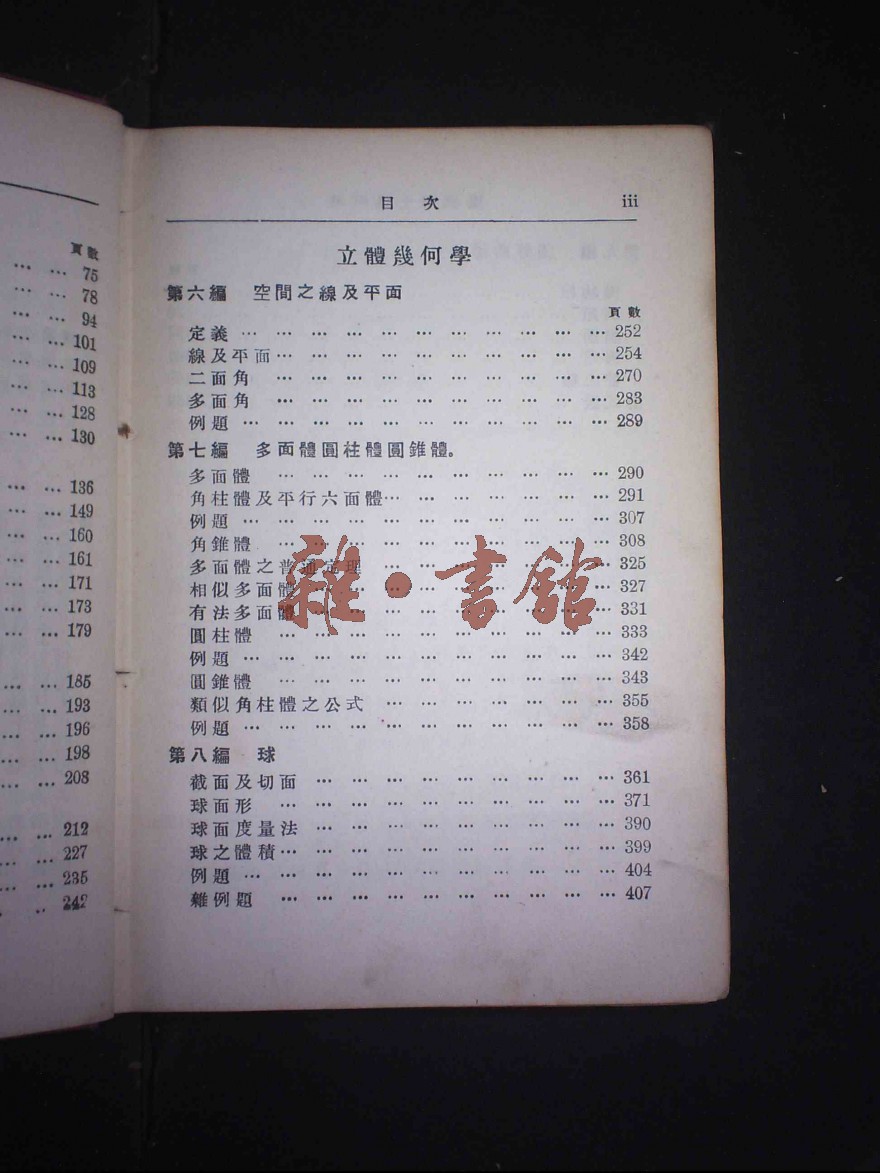 頁數
… … 75
… … 78
… … 94
… … 101
… … 109
… … 113
… … 128
… … 130
… … 136
… … 149
… … 160
… … 161
… … 171
… … 173
… … 179
… … 185
… … 193
… … 196
… … 198
… … 208
… … 212
… … 227
… … 235
… … 242
目次 iii
立體幾何學
第六編 空間之線及平面
頁數
定義 … … … … … … … … … … … 252
線及平面 … … … … … … … … … … 254
二面角 … … … … … … … … … … 270
多面角 … … … … … … … … … … 283
例題 … … … … … … … … … … … 289
第七編 多面體圓柱體圓錐體。
多面體 … … … … … … … … … … 290
角柱體及平行六面體 … … … … … … … 291
例題 … … … … … … … … … … … 307
角錐體 … … … … … … … … … … 308
多面體之普通定理 … … … … … … … 325
相似多面體 … … … … … … … … … 327
有法多面體 … … … … … … … … … 331
圓柱體 … … … … … … … … … … 333
例題 … … … … … … … … … … … 342
圓錐體 … … … … … … … … … … 343
類似角柱體之公式 … … … … … … … 355
例題 … … … … … … … … … … … 358
第八編 球
截面及切面 … … … … … … … … … 361
球面形 … … … … … … … … … … 371
球面度量法 … … … … … … … … … 390
球之體積 … … … … … … … … … … 399
例題 … … … … … … … … … … … 404
雜例題 … … … … … … … … … … 407
雜·書館